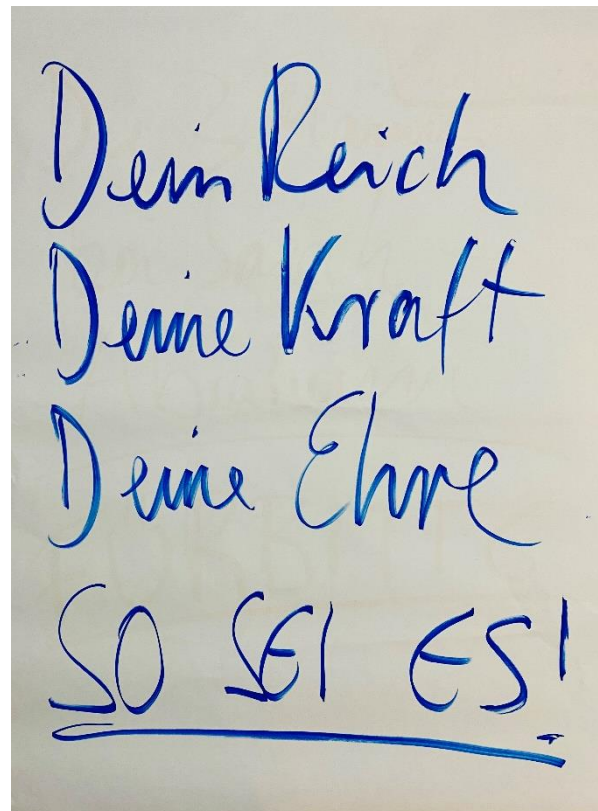 Dein Reich
Deine Kraft
Deine Ehre
SO SEI ES!